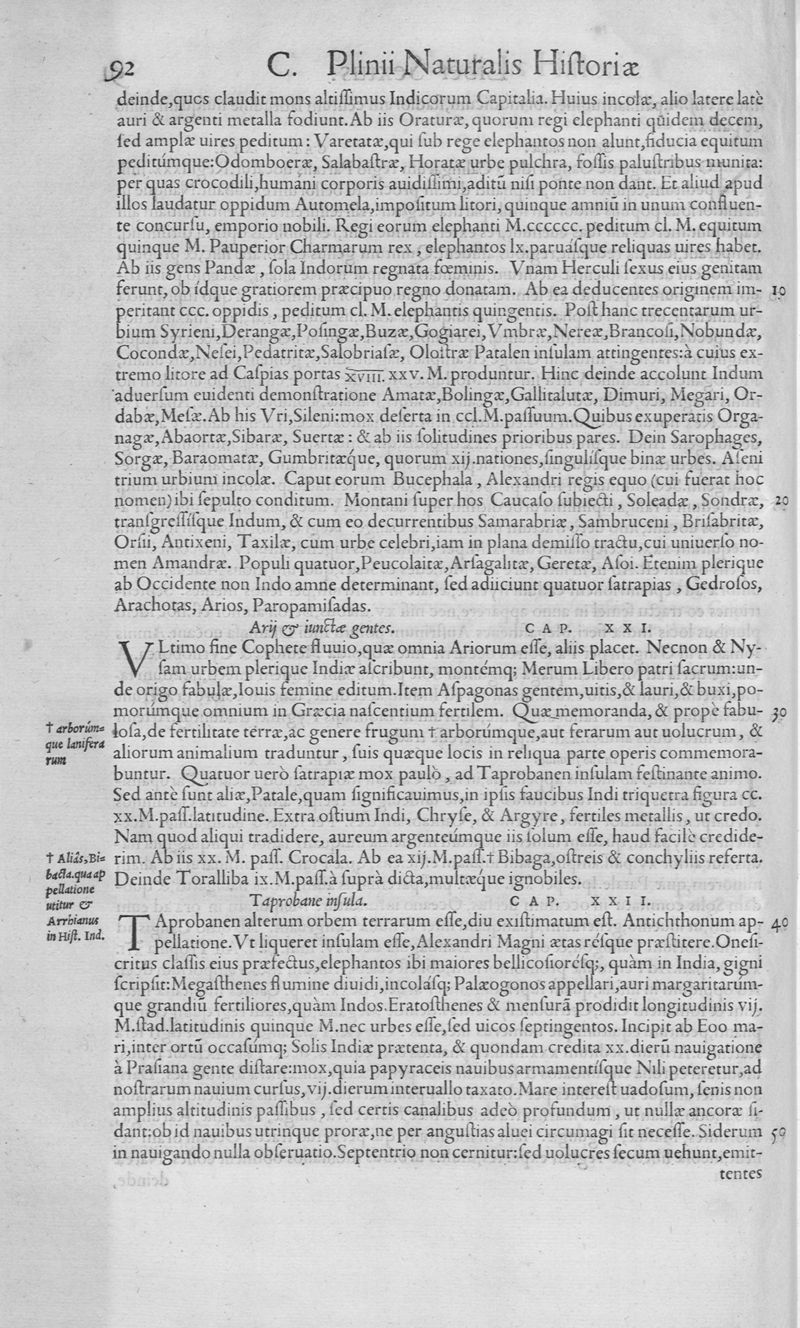 92 C. Plinii Naturalis Hiſtoriæ
deinde,quos claudit mons altiſſimus Indicorum Capitalia. Huius incolæ, alio latere latè
auri & argenti metalla fodiunt. Ab iis Oraturæ, quorum regi elephanti quidem decem,
ſed amplæ uires peditum: Varetatæ,qui ſub rege elephantos non alunt,fiducia equitum
peditúmque:Odomboeræ, Salabaſtræ, Horatæ urbe pulchra, foſſis paluſtribus munita:
per quas crocodili,humani corporis auidiſſimi,aditū niſi ponte non dant. Et aliud apud
illos laudatur oppidum Automela,impoſitum litori, quinque amniū in unum confluen-
te concurſu, emporio nobili. Regi eorum elephanti M.cccccc. peditum cl. M. equitum
quinque M. Pauperior Charmarum rex, elephantos lx.paruáſque reliquas uires habet.
Ab iis gens Pandæ, ſola Indorum regnata fœminis. Vnam Herculi ſexus eius genitam
ferunt, ob idque gratiorem præcipuo regno donatam. Ab ea deducentes originem im- 10
peritant ccc. oppidis, peditum cl. M. elephantis quingentis. Poſt hanc trecentarum ur-
bium Syrieni,Derangæ,Poſingæ,Buzæ,Gogiarei,Vmbræ,Nereæ,Brancoſi,Nobundæ,
Cocondæ,Neſei,Pedatritæ,Salobriaſæ, Oloſtræ Patalen inſulam attingentes:à cuius ex-
tremo litore ad Caſpias portas xviii. xxv. M. produntur. Hinc deinde accolunt Indum
aduerſum euidenti demonſtratione Amatæ,Bolingæ,Gallitalutæ, Dimuri, Megari, Or-
dabæ,Meſæ.Ab his Vri,Sileni:mox deſerta in ccl.M.paſſuum.Quibus exuperatis Orga-
nagæ,Abaortæ,Sibaræ, Suertæ: & ab iis ſolitudines prioribus pares. Dein Sarophages,
Sorgæ, Baraomatæ, Gumbritæque, quorum xij.nationes,ſinguliſque binæ urbes. Aſeni
trium urbium incolæ. Caput eorum Bucephala, Alexandri regis equo (cui fuerat hoc
nomen)ibi ſepulto conditum. Montani ſuper hos Caucaſo ſubiecti, Soleadæ, Sondræ, 20
tranſgreſſiſque Indum, & cum eo decurrentibus Samarabriæ, Sambruceni, Briſabritæ,
Orſii, Antixeni, Taxilæ, cum urbe celebri,iam in plana demiſſo tractu,cui uniuerſo no-
men Amandræ. Populi quatuor,Peucolaitæ,Arſagalitæ, Geretæ, Aſoi. Etenim plerique
ab Occidente non Indo amne determinant, ſed adiiciunt quatuor ſatrapias, Gedroſos,
Arachotas, Arios, Paropamiſadas.
Arij & iunctæ gentes. CAP. XXI.
VLtimo fine Cophete fluuio,quæ omnia Ariorum eſſe, aliis placet. Necnon & Ny-
ſam urbem plerique Indiæ aſcribunt, montémq; Merum Libero patri ſacrum:un-
de origo fabulæ,Iouis femine editum.Item Aſpagonas gentem,uitis,& lauri,& buxi,po-
morúmque omnium in Græcia naſcentium fertilem. Quæ memoranda, & prope fabu- 30
† arborúm=
que lanifera
rum
loſa,de fertilitate terræ,ac genere frugum † arborúmque,aut ferarum aut uolucrum, &
aliorum animalium traduntur, ſuis quæque locis in reliqua parte operis commemora-
buntur. Quatuor uerò ſatrapiæ mox paulò, ad Taprobanen inſulam feſtinante animo.
Sed antè ſunt aliæ,Patale,quam ſignificauimus,in ipſis faucibus Indi triquetra figura cc.
xx.M.paſſ.latitudine. Extra oſtium Indi, Chryſe, & Argyre, fertiles metallis, ut credo.
Nam quod aliqui tradidere, aureum argenteúmque iis ſolum eſſe, haud facilè credide-
† Aliâs,Bi=
bacta.qua ap
pellatione
utitur &
Arrbianus
in Hiſt. Ind.
rim. Ab iis xx. M. paſſ. Crocala. Ab ea xij.M.paſſ.† Bibaga,oſtreis & conchyliis referta.
Deinde Toralliba ix.M.paſſ.à ſuprà dicta,multæque ignobiles.
Taprobane inſula. CAP. XXII.
TAprobanen alterum orbem terrarum eſſe,diu exiſtimatum eſt. Antichthonum ap- 40
pellatione.Vt liqueret inſulam eſſe,Alexandri Magni ætas réſque præſtitere.Oneſi-
critus claſſis eius præfectus,elephantos ibi maiores bellicoſioréſq;, quàm in India, gigni
ſcripſit:Megaſthenes flumine diuidi,incoláſq; Palæogonos appellari,auri margaritarúm-
que grandiū fertiliores,quàm Indos.Eratoſthenes & menſurā prodidit longitudinis vij.
M.ſtad.latitudinis quinque M.nec urbes eſſe,ſed uicos ſeptingentos. Incipit ab Eoo ma-
ri,inter ortū occaſúmq; Solis Indiæ prætenta, & quondam credita xx.dierū nauigatione
à Praſiana gente diſtare:mox,quia papyraceis nauibus armamentiſque Nili peteretur,ad
noſtrarum nauium curſus,vij.dierum interuallo taxato.Mare intereſt uadoſum, ſenis non
amplius altitudinis paſſibus, ſed certis canalibus adeò profundum, ut nullæ ancoræ ſi-
dant:ob id nauibus utrinque proræ,ne per anguſtias aluei circumagi ſit neceſſe. Siderum 50
in nauigando nulla obſeruatio.Septentrio non cernitur:ſed uolucres ſecum uehunt,emit-
tentes